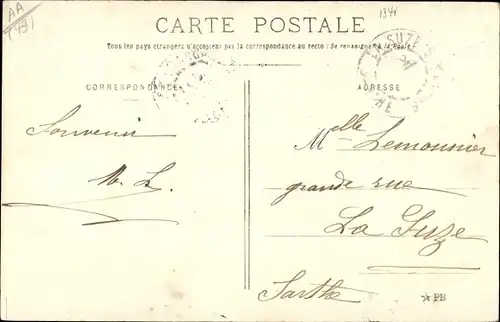 AA
1348
CARTE POSTALE
Tous les pays étrangers n'acceptent pas la correspondance au recto (Se renseigner à la Poste)
CORRESPONDANCE
ADRESSE
Souvenir
M. L.
Mlle Lemonnier
grande rue
La Suze
Sarthe
PB